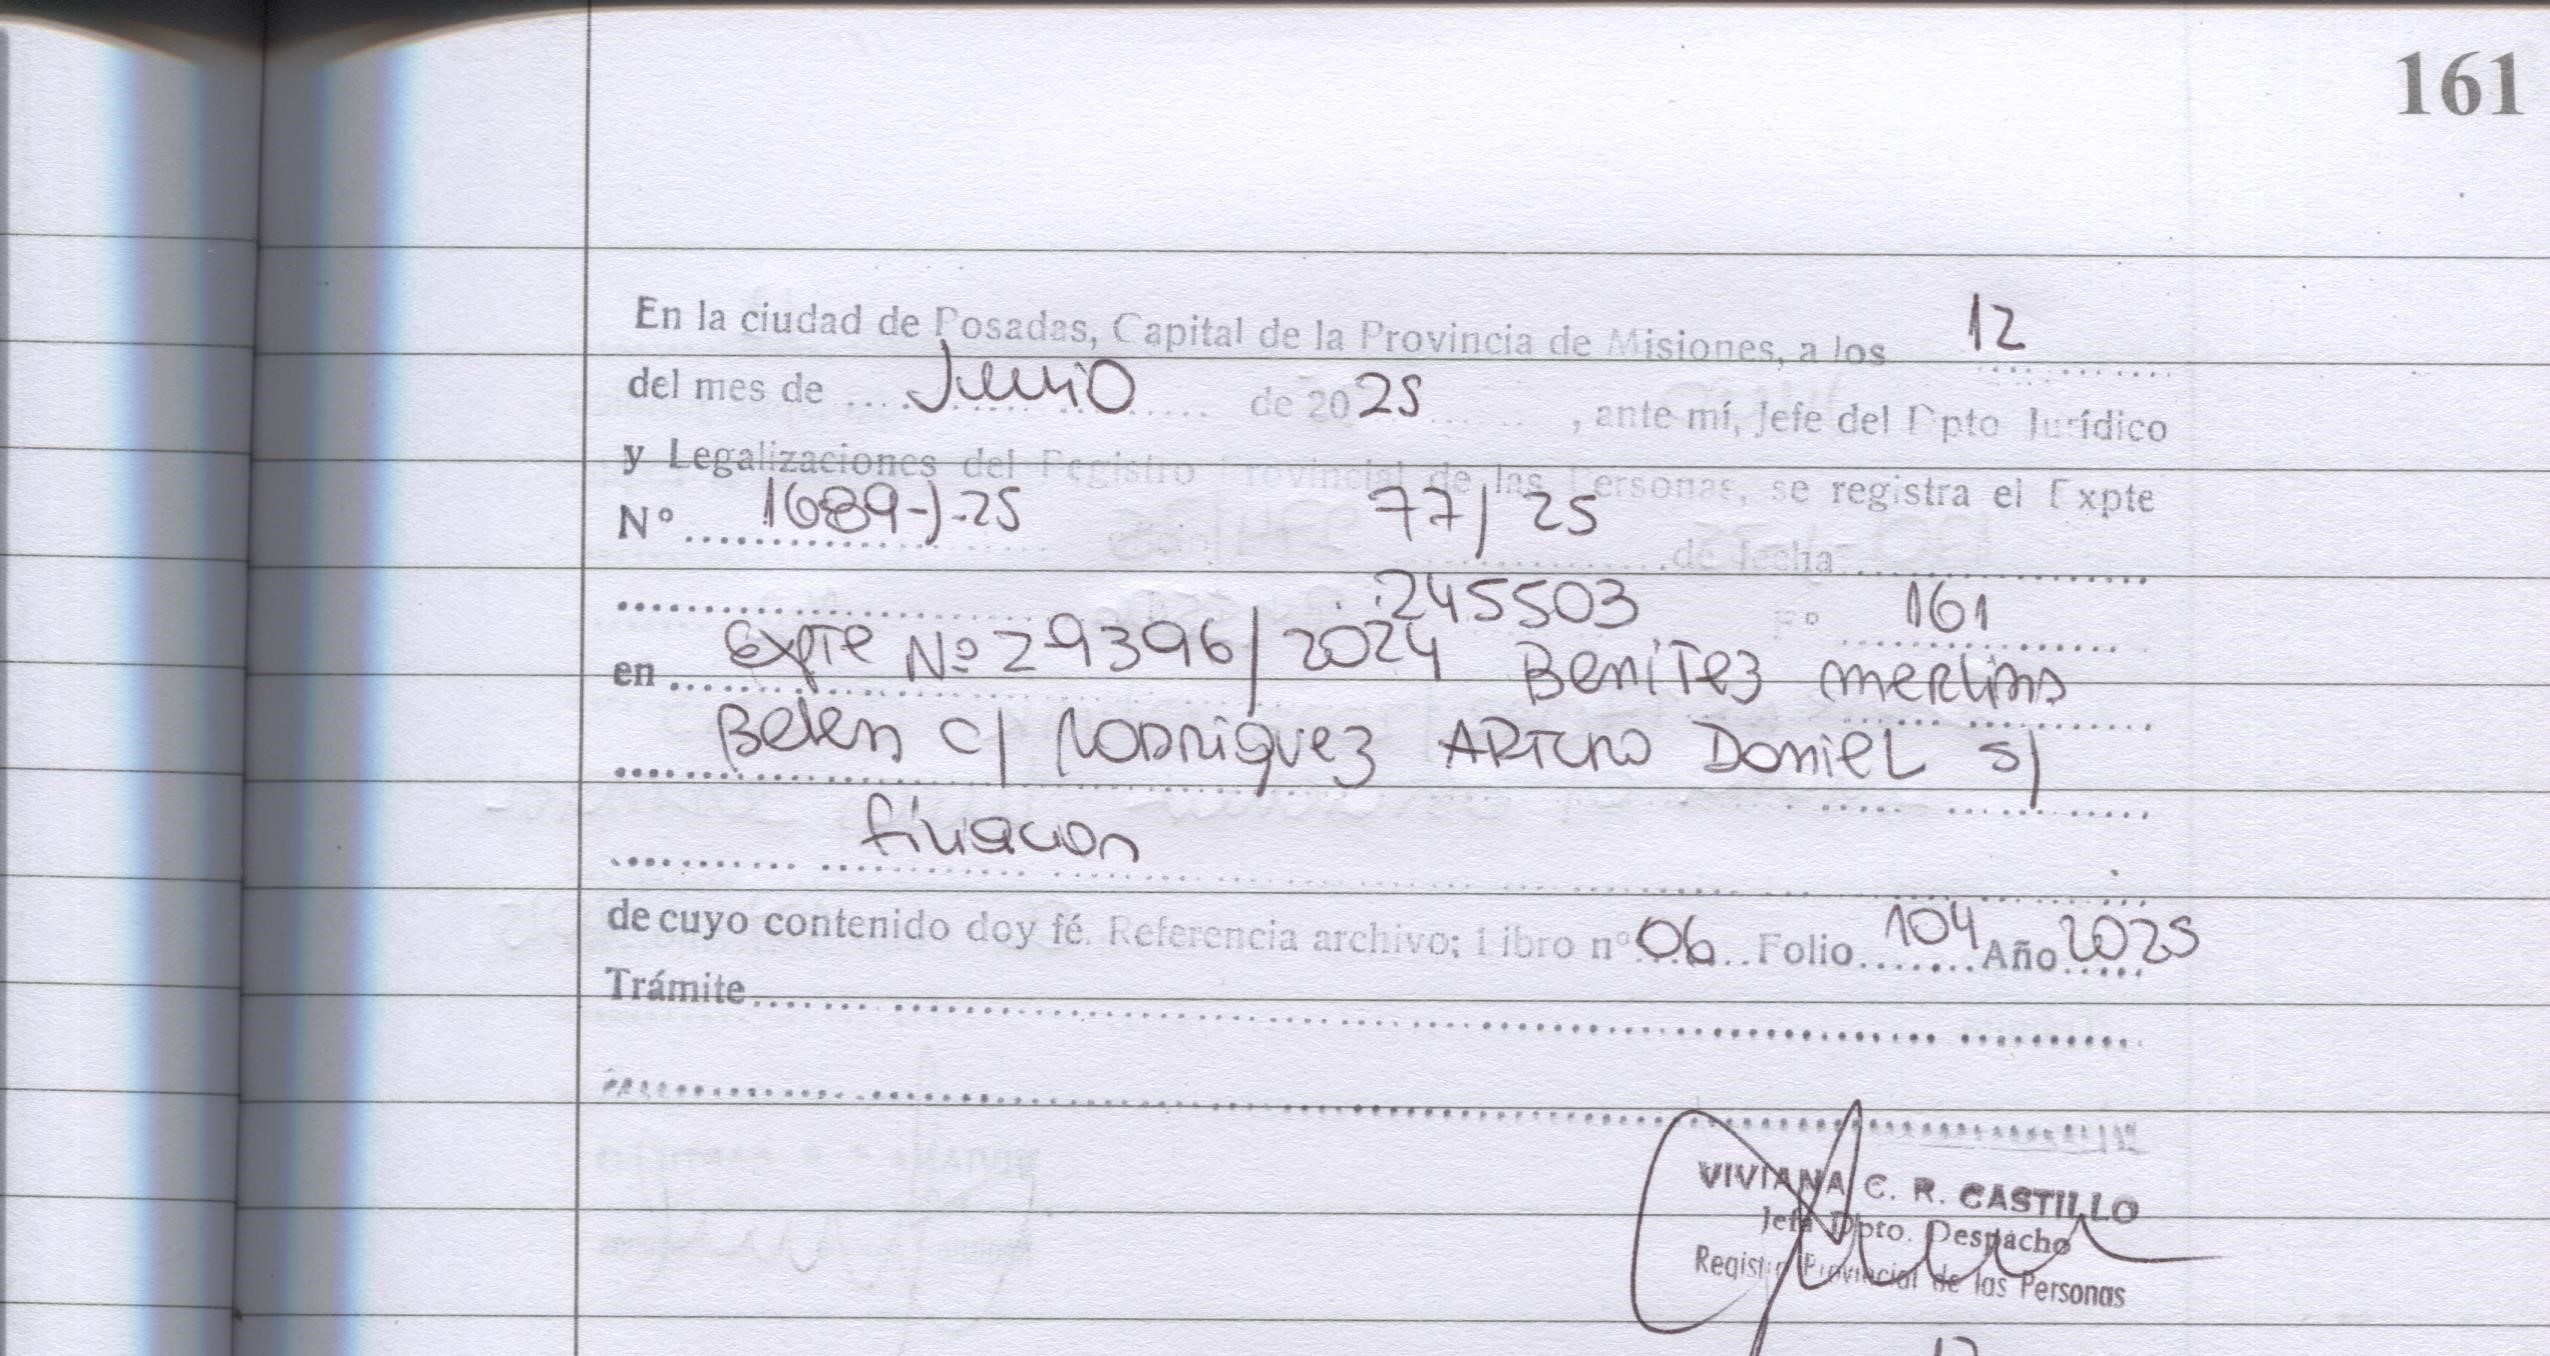 161
En la ciudad de Posadas, Capital de la Provincia de Misiones, a los 12
del mes de Junio de 2025, ante mí, Jefe del Dpto Jurídico
y Legalizaciones del Registro Provincial de las Personas, se registra el Expte
Nº 1689-J-25 77/25 de fecha
245503 Fº 161
en Expte Nº 29396/2024 Benitez
Belen c/ Rodriguez Arturo Daniel s/
filiacion
de cuyo contenido doy fé. Referencia archivo; Libro nº 06 Folio 104 Año 2025
Trámite
VIVIANA C. R. CASTILLO
Jefa Dpto. Despacho
Registro Provincial de las Personas